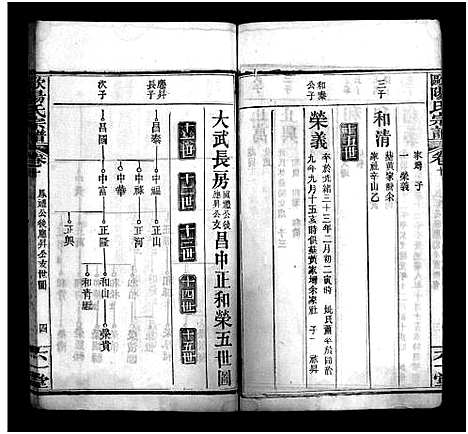 歐陽氏宗譜
卷十
三子
和清
一榮義
家祖辛山乙
十五世
和泰公子
榮義
生於光緒三十三年二月初二寅時
九年九月十五亥時
六一堂
大武長房
鳳遷公後應昇公支
昌中正和榮五世圖
十一世
十二世
十三世
十四世
十五世
應昇長子
昌泰
中福
正山
中華
正河
次子
昌國
中富
正隆
和山
榮貴
正興
和青
歐陽氏宗譜
卷十
鳳遷公後應昇公支世圖
四
六一堂